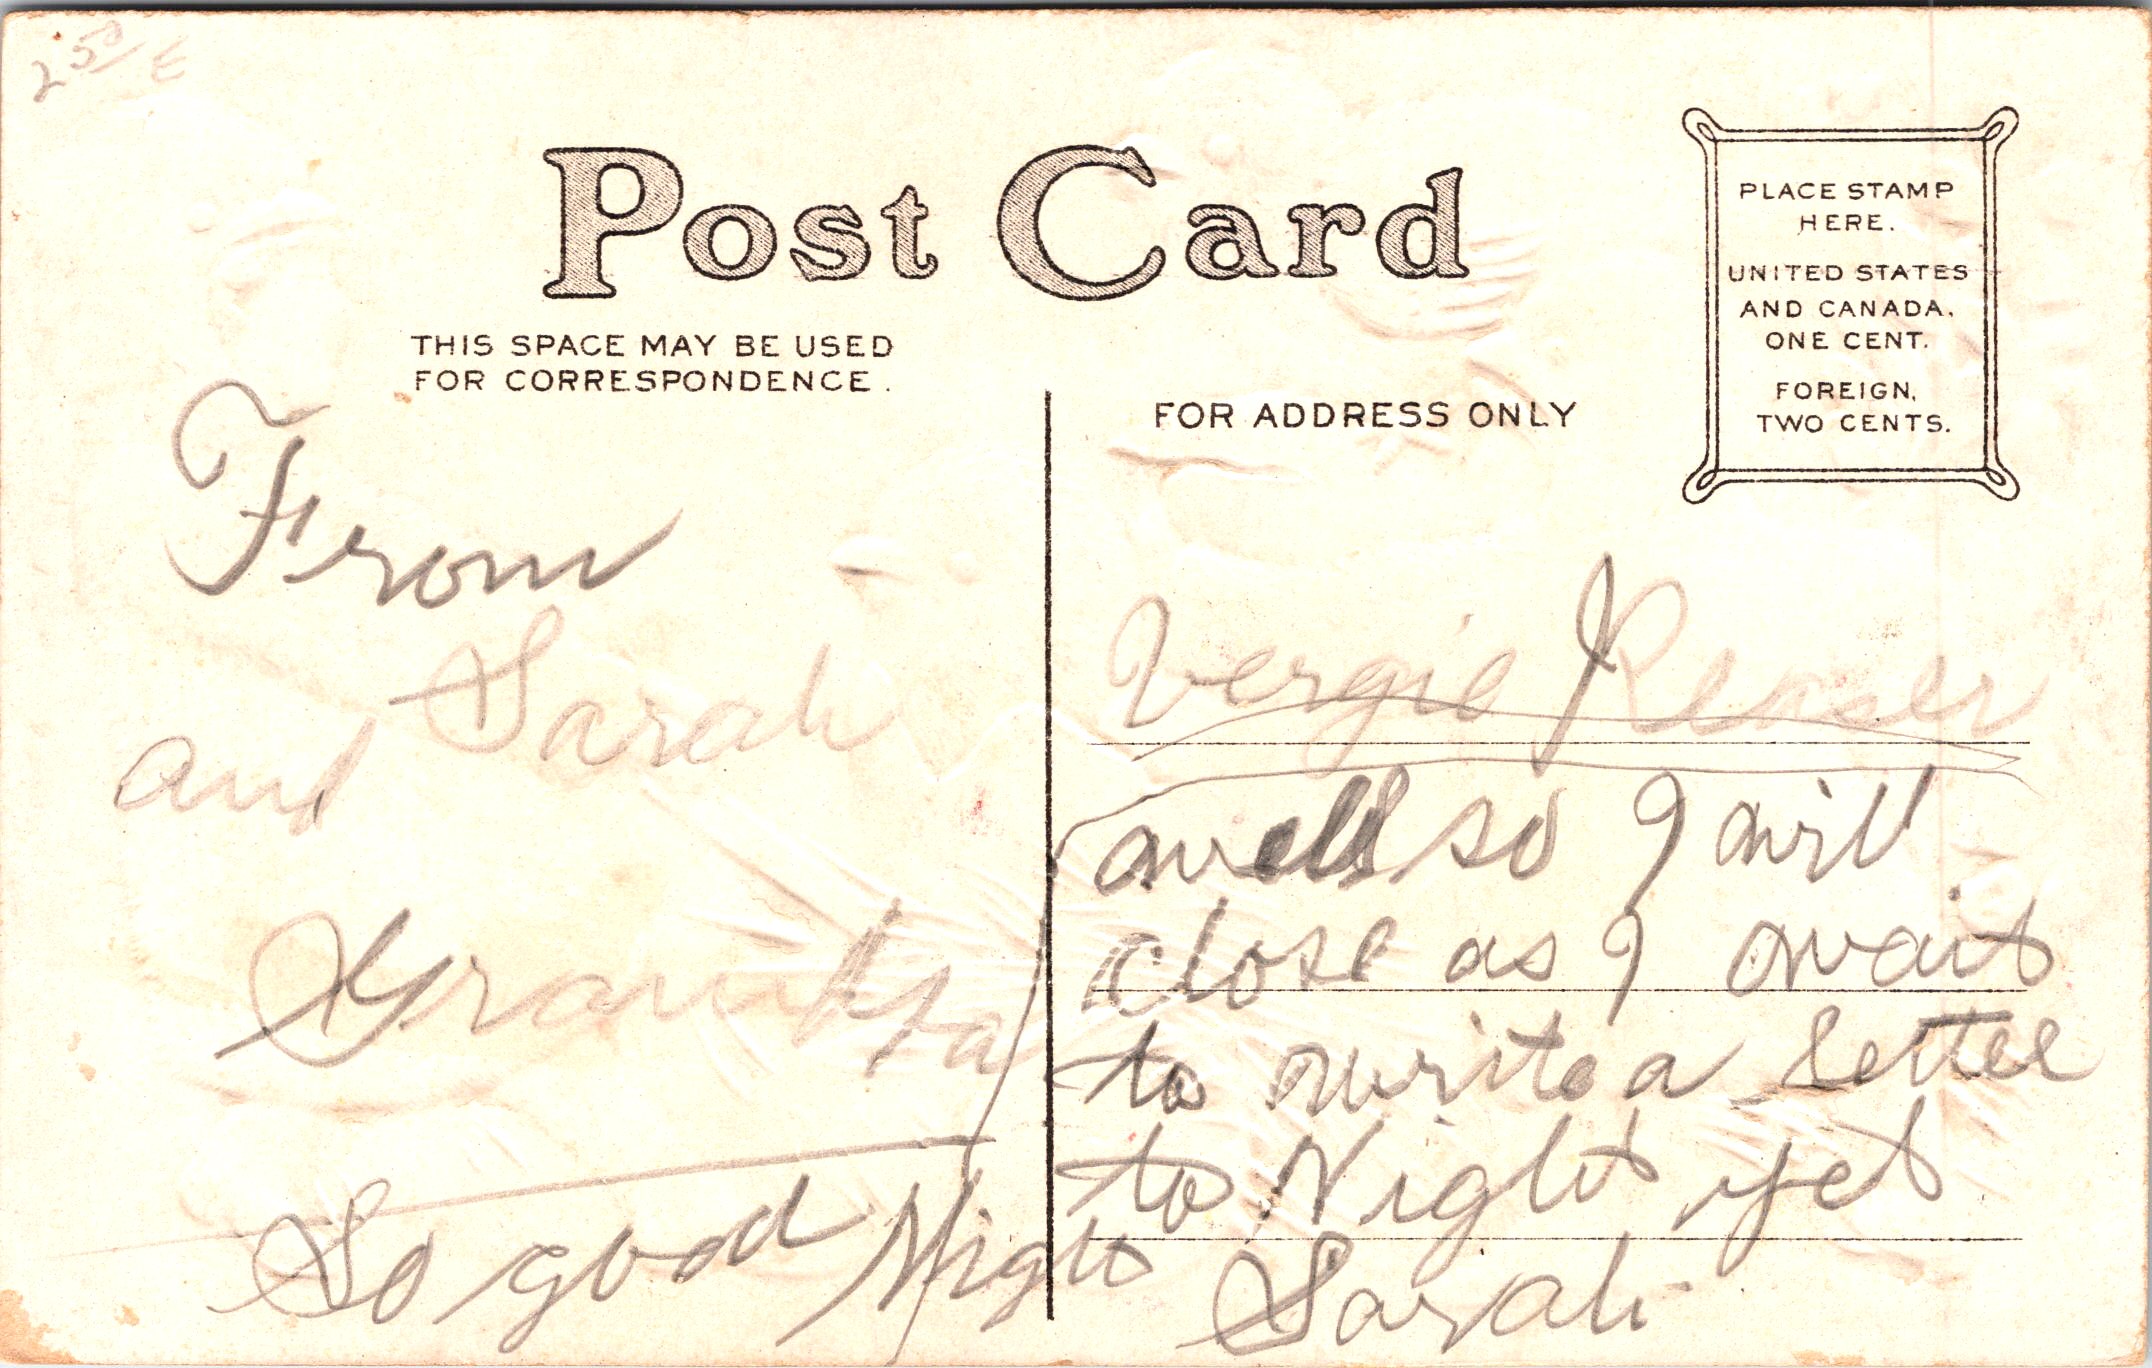 2 50 E
Post Card
THIS SPACE MAY BE USED
FOR CORRESPONDENCE.
From
Sarah
and
Grandpa
So good Night
PLACE STAMP
HERE.
UNITED STATES
AND CANADA.
ONE CENT.
FOREIGN,
TWO CENTS.
FOR ADDRESS ONLY
Vergie
well so I will
close as I wait
to write a letter
to Night yet
Sarah